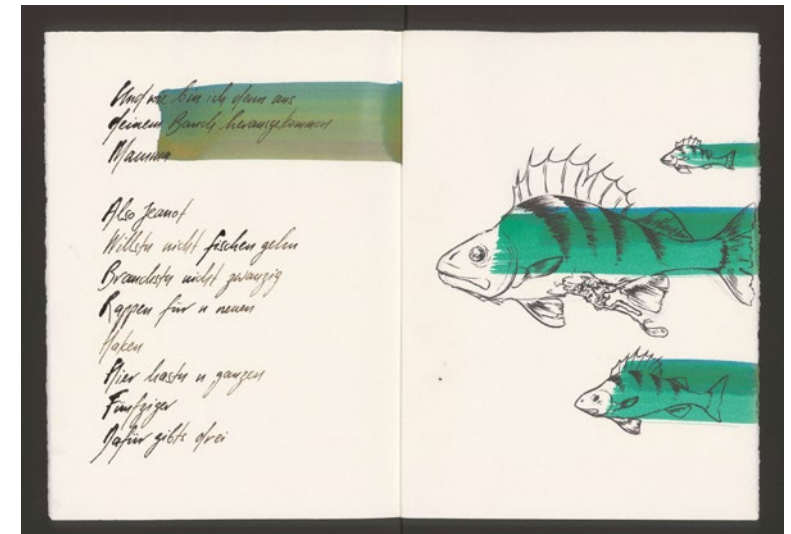 Und wie bin ich denn aus
deinem Bauch herausgekommen
Mamma
Also Jeanot
Willstu nicht fischen gehn
Brauchstu nicht zwanzig
Rappen für n neuen
Haken
Hier hastu n ganzen
Fünfziger
Dafür gibts drei